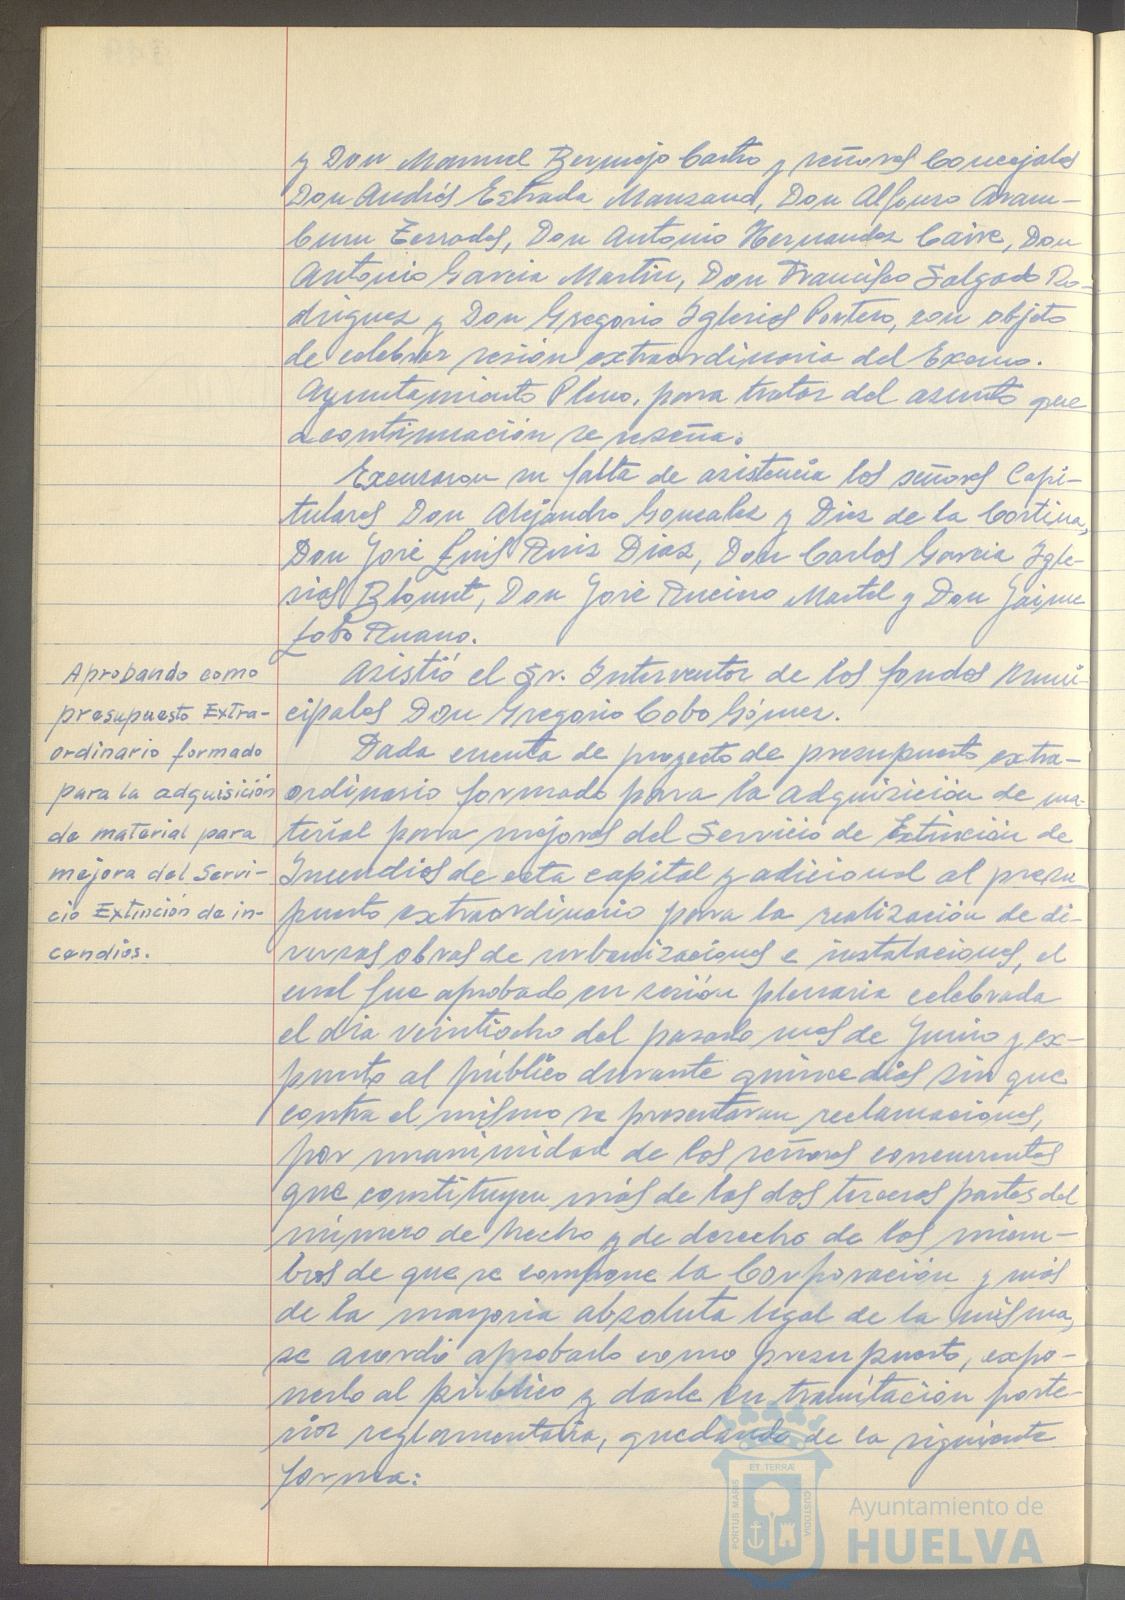 y Don Manuel Bermejo Castro y señores Concejales
Don Andrés Estrada Manzano, Don Alfonso Aram-
buru Terrades, Don Antonio Hernandez Caire, Don
Antonio Garcia Martin, Don Francisco Salgado Ro-
driguez y Don Gregorio Iglesias Portero, con objeto
de celebrar sesión extraordinaria del Excmo.
Ayuntamiento Pleno, para tratar del asunto que
a continuación se reseña.
Excusaron su falta de asistencia los señores Capi-
tulares Don Alejandro Gonzalez y Diez de la Cortina,
Don José Luis Ruiz Diaz, Don Carlos Garcia Igle-
sias Blount, Don José Martel y Don Jaime
Lobo Ruano.
Asistió el Sr. Interventor de los fondos Muni-
cipales Don Gregorio Cobo Gómez.
Aprobando como
presupuesto Extra-
ordinario formado
para la adquisición
de material para
mejora del Servi-
cio Extinción de in-
cendios.
Dada cuenta de proyecto de presupuesto extra-
ordinario formado para la adquisición de ma-
terial para mejoras del Servicio de Extinción de
Incendios de esta capital y adicional al presu-
puesto extraordinario para la realización de di-
versas obras de urbanizaciones e instalaciones, el
cual fue aprobado en sesión plenaria celebrada
el día veintiocho del pasado mes de Junio y ex-
puesto al público durante quince días sin que
contra el mismo se presentaran reclamaciones,
por unanimidad de los señores concurrentes
que constituyen más de las dos terceras partes del
número de hecho y de derecho de los miem-
bros de que se compone la Corporación y más
de la mayoria absoluta legal de la misma,
se acordó aprobarlo como presupuesto, expo-
nerlo al público y darle su tramitación poste-
rior reglamentaria, quedando de la siguiente
forma:
ET TERRÆ
PORTUS MARIS
CUSTODIA
Ayuntamiento de
HUELVA